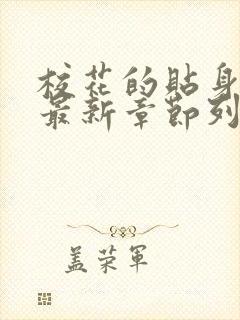 校花的貼身
最新章節列
盖荣軍